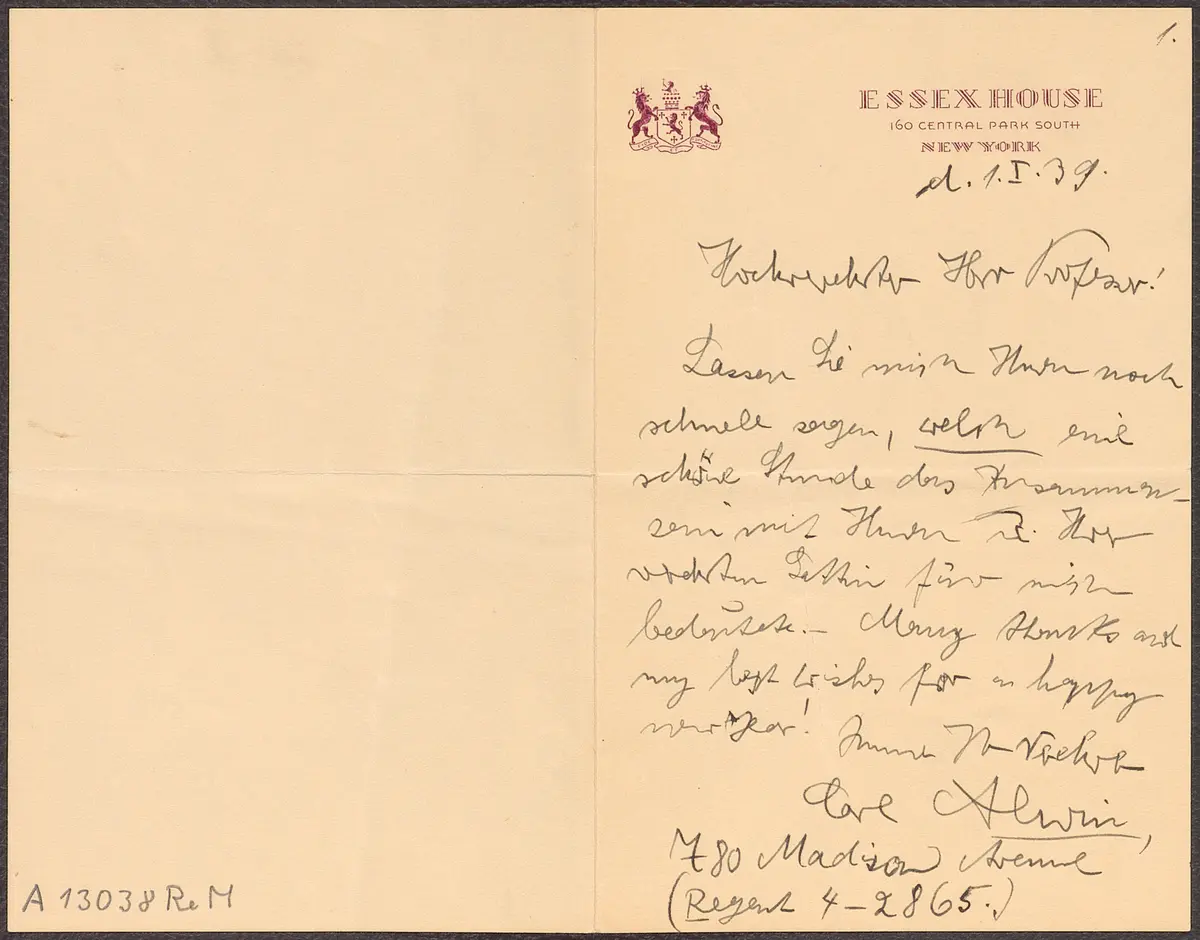 1.
ESSEX HOUSE
160 CENTRAL PARK SOUTH
NEW YORK
d. 1. I. 39.
Hochverehrter Herr Professor!
Lassen Sie mich Ihnen noch
schnell sagen, welch eine
schöne Stunde das Zusammen-
sein mit Ihnen u. Ihrer
verehrten Gattin für mich
bedeutete. – Many thanks and
my best wishes for a happy
new year!
Immer Ihr Verehrer
Carl Alwin,
780 Madison Avenue
(Regent 4-2865.)
A 13038 ReM